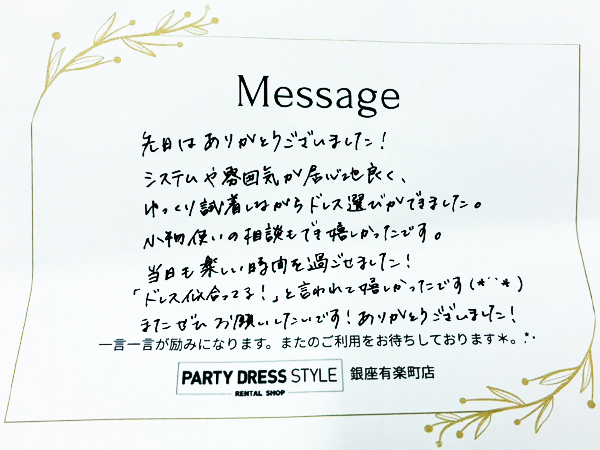 Message
先日はありがとうございました！
システムや雰囲気が居心地良く、
ゆっくり試着しながらドレス選びができました。
小物使いの相談もでき嬉しかったです。
当日も楽しい時間を過ごせました！
「ドレス似合ってる！」と言われて嬉しかったです(*¨*)
またぜひお願いしたいです！ありがとうございました！
一言一言が励みになります。またのご利用をお待ちしております＊。.*･
PARTY DRESS STYLE 銀座有楽町店
RENTAL SHOP